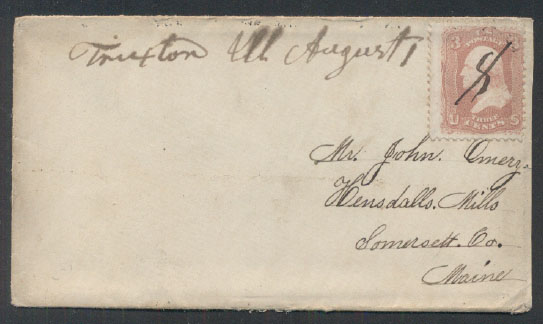 Truxton Ill August 1
3 3
U THREE CENTS S
Mr. John. Emery.
Hensdalls. Mills
Somersett. Co.
Maine